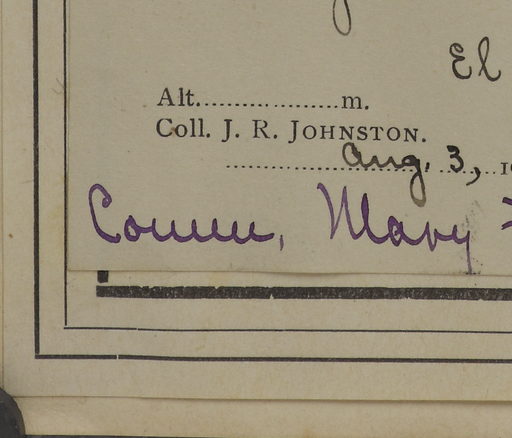 El
Alt...................m.
Coll. J. R. JOHNSTON.
Aug. 3, 19
Comm. Mary